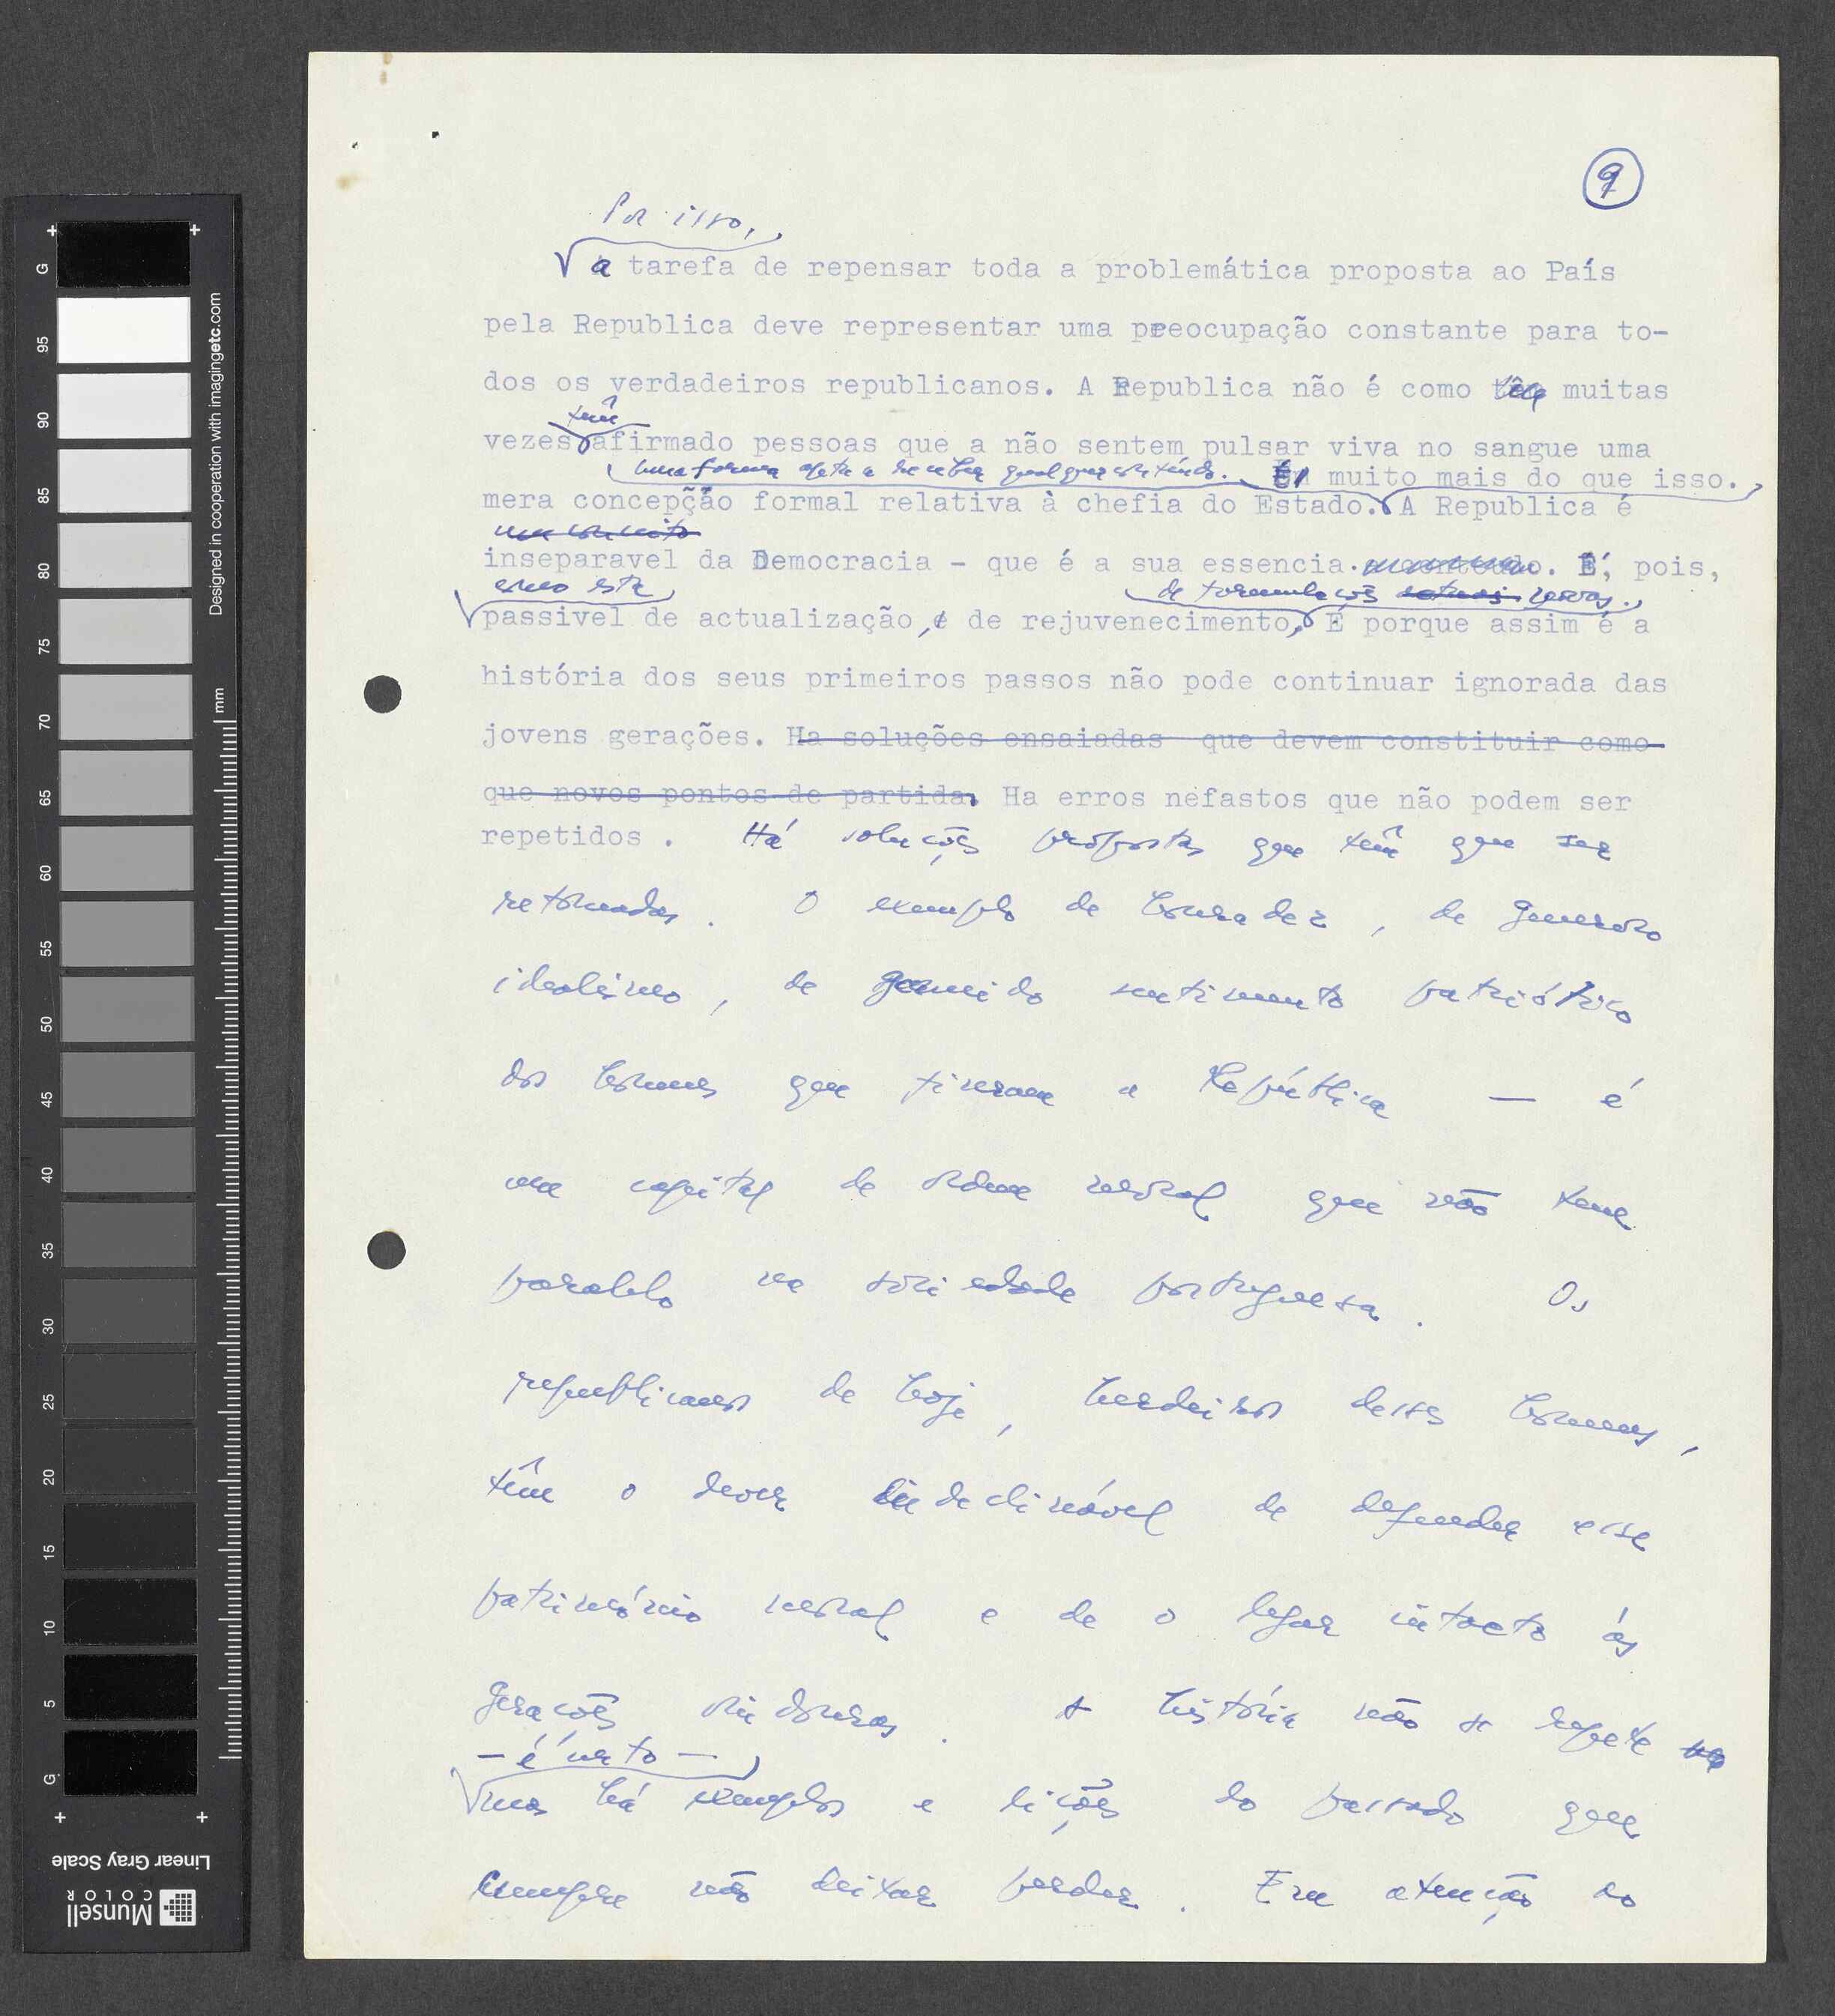 9
Por isso,
a tarefa de repensar toda a problemática proposta ao País
pela Republica deve representar uma preocupação constante para to-
dos os verdadeiros republicanos. A Republica não é como têm muitas
têm
vezes afirmado pessoas que a não sentem pulsar viva no sangue uma
uma forma apta a receber qualquer conteúdo. É muito mais do que isso.
mera concepção formal relativa à chefia do Estado. A Republica é
inseparavel da Democracia - que é a sua essencia. É, pois,
como esta de formulações novas.
passivel de actualização, e de rejuvenecimento, É porque assim é a
história dos seus primeiros passos não pode continuar ignorada das
jovens gerações. Ha soluções ensaiadas que devem constituir como
que novos pontos de partida. Ha erros nefastos que não podem ser
repetidos . Há soluções propostas que têm que ser
retomadas. O exemplo de honradez, de generoso
idealismo, de genuido sentimento patriótico
dos homens que fizeram a República — é
um capital de ordem moral que não tem
paralelo na sociedade portuguesa. Os
republicanos de hoje, herdeiros desses homens,
têm o dever indeclinável de defender esse
património moral e de o legar intacto às
gerações vindouras. A história não se repete
— é certo —
mas há exemplos e lições do passado que
cumpre não deixar perder. Em atenção ao
G
95
90
85
80
75
70
65
60
55
50
45
40
35
30
25
20
15
10
5
G
mm
Designed in cooperation with imagingetc.com
Linear Gray Scale
Munsell
COLOR